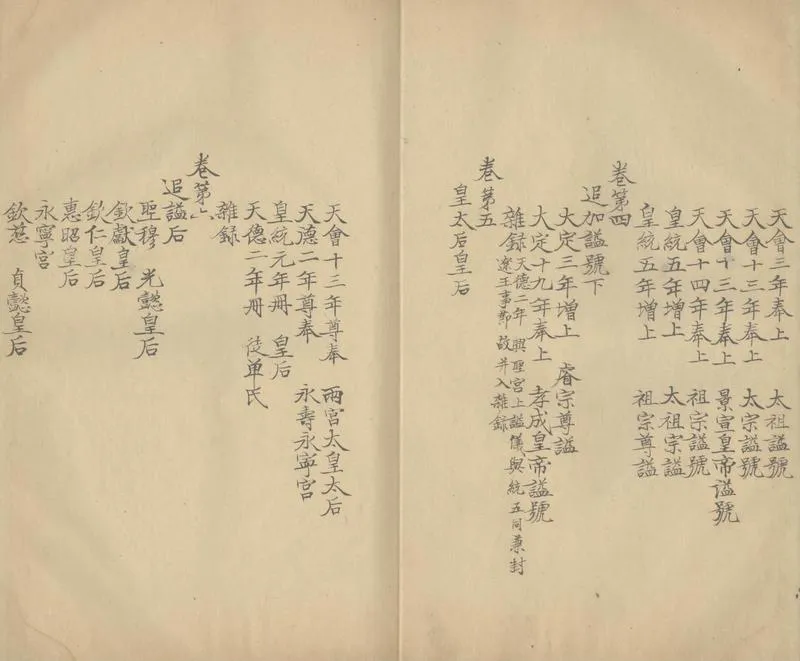 天會三年奉上 太祖謚號
天會十三年奉上 太宗謚號
天會十三年奉上 景宣皇帝謚號
天會十四年奉上 祖宗謚號
皇統五年增上 太祖宗謚
皇統五年增上 祖宗尊謚
卷第四
追加謚號下
大定三年增上 睿宗尊謚
大定十九年奉上 孝成皇帝謚號
雜録 天德二年 興聖宮上謚儀與統五同兼封
遼王事節 故并入雜録
卷第五
皇太后皇后
天會十三年尊奉 兩宮太皇太后
天德二年尊奉 永壽永寧宮
皇統元年冊 皇后
天德二年冊 徒單氏
雜録
卷第六
追謚后
聖穆 光懿皇后
欽獻皇后
欽仁皇后
惠昭皇后
永寧宮
欽慈 貞懿皇后